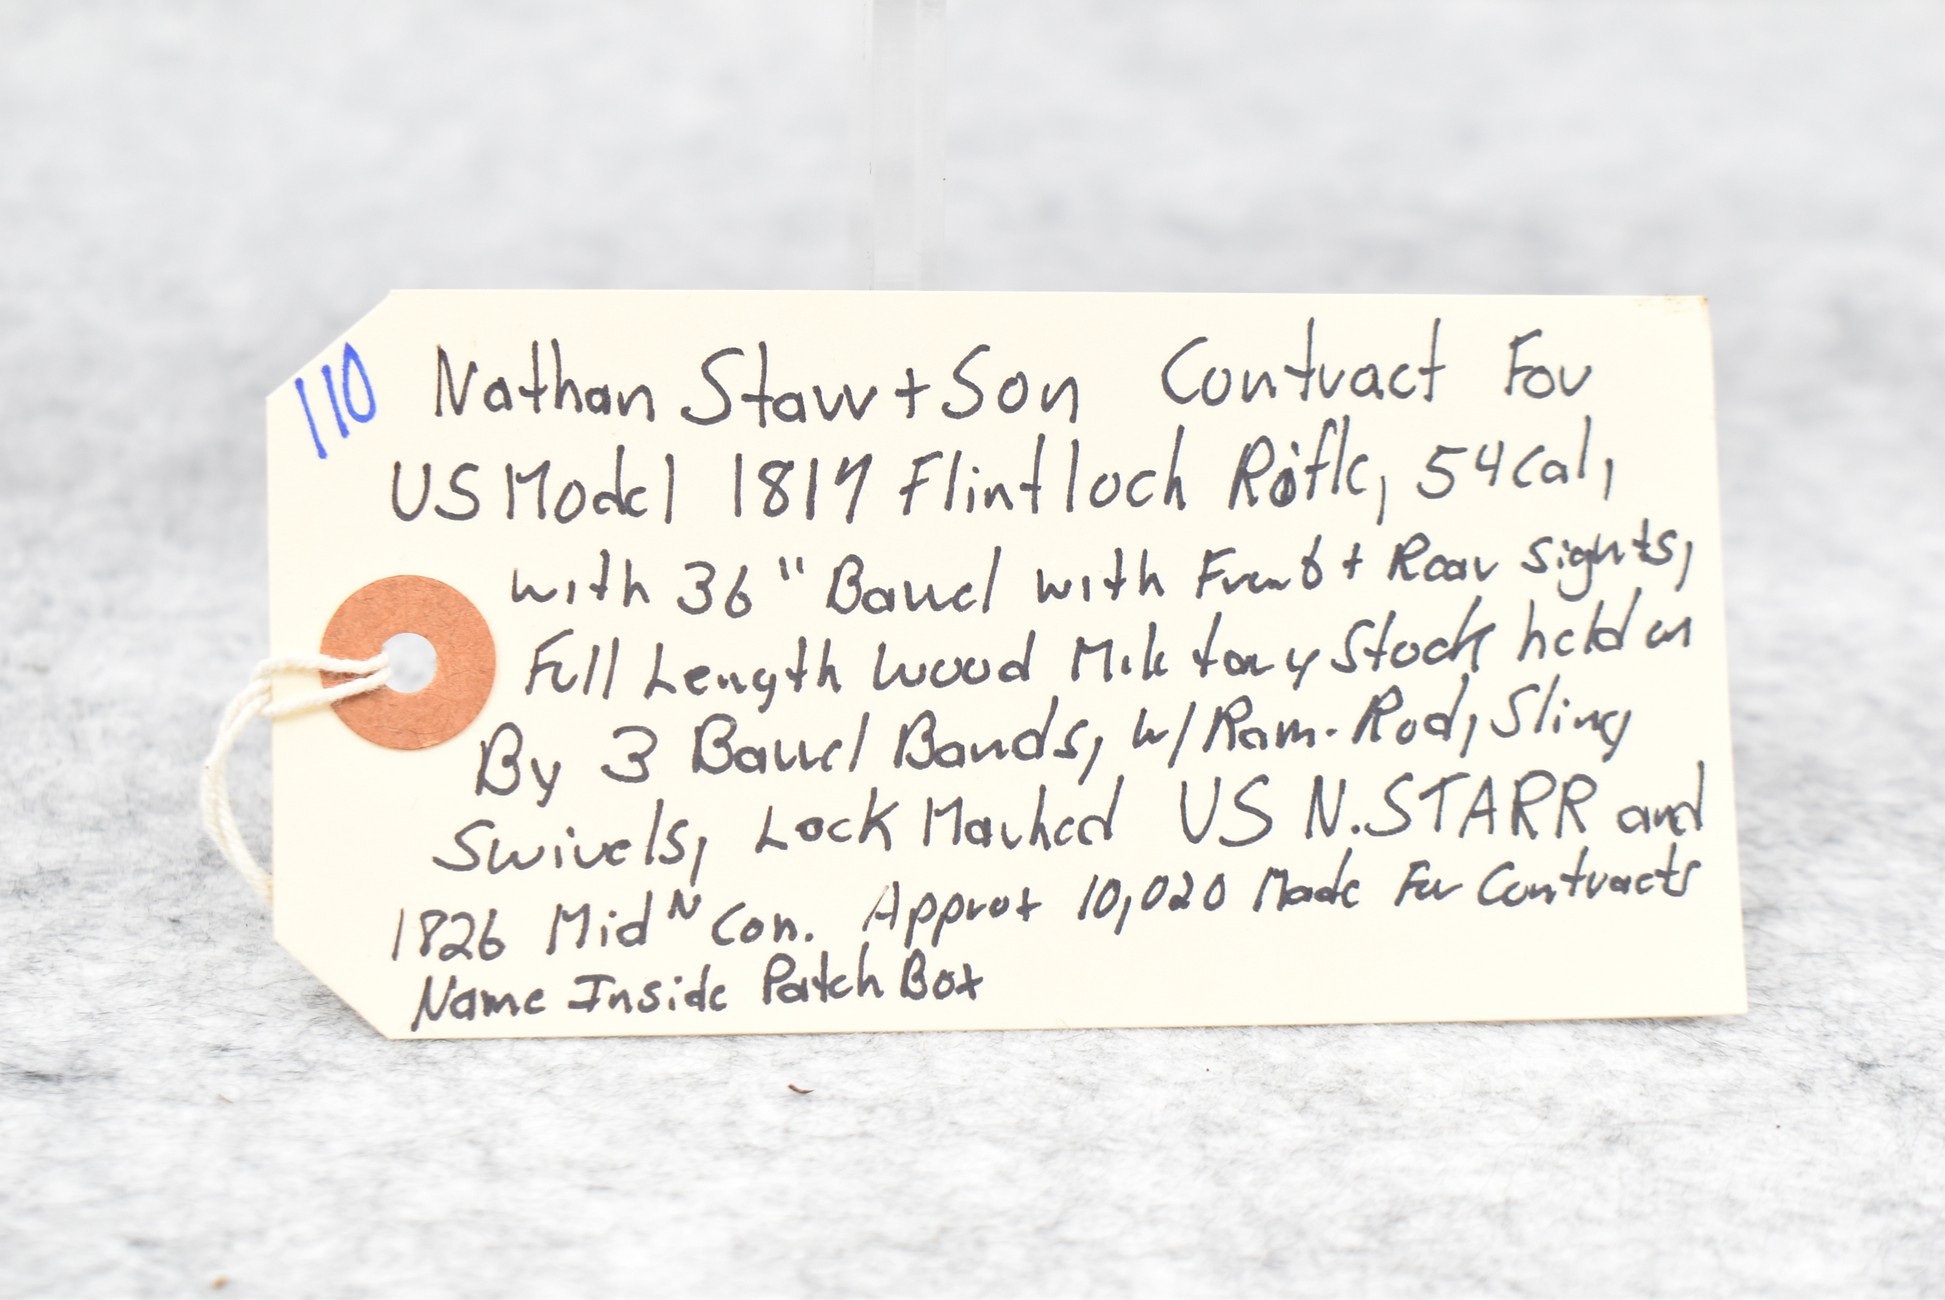 110
Nathan Starr + Son Contract For
US Model 1817 Flintlock Rifle, 54 Cal,
with 36" Barrel with Front + Rear Sights,
Full Length Wood Military Stock held on
By 3 Barrel Bands, w/ Ram-Rod, Sling
Swivels, Lock Marked US N.STARR and
1826 Mid N Con. Approx 10,020 Made For Contracts
Name Inside Patch Box